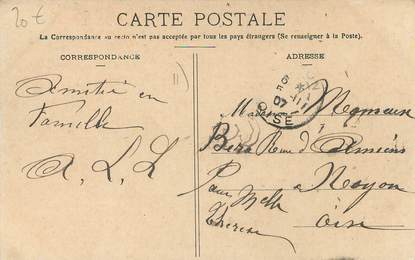 20 €
CARTE POSTALE
La Correspondance au recto n'est pas acceptée par tous les pays étrangers (Se renseigner à la Poste).
CORRESPONDANCE
ADRESSE
Amitié en
Famille
A. L. L
07
OISE
Rue d'Amiens
a Noyon
Oise
Pour Melle
Therese